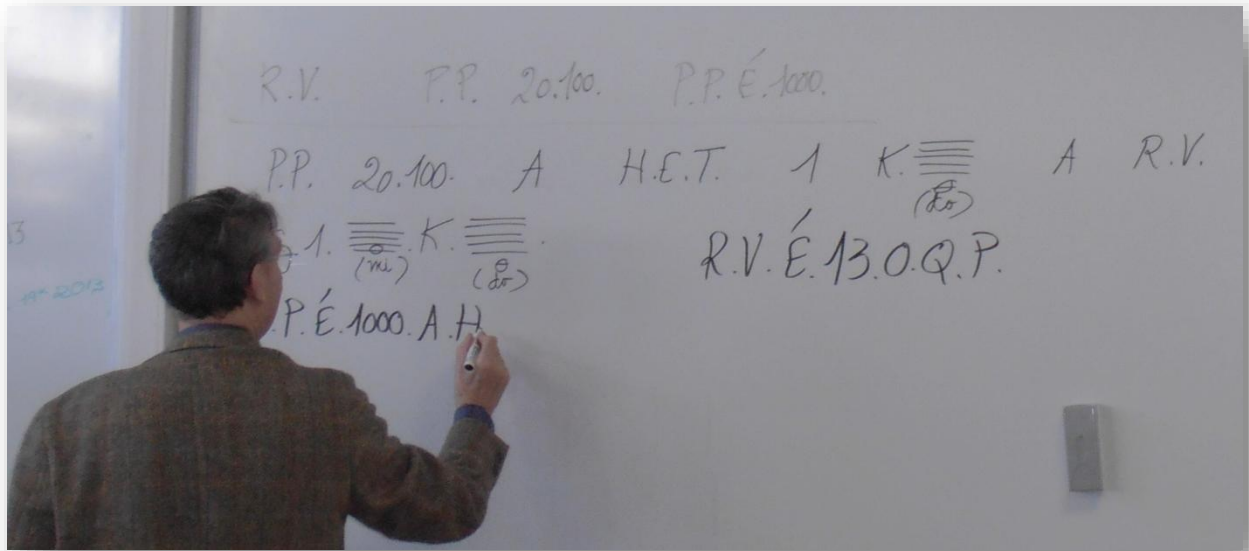 R.V. P.P. 20.100. P.P.É.1000.
P.P. 20.100. A H.E.T. 1 K. (do) A R.V.
.1. (mi). K. (do).
R.V.É.13.O.Q.P.
.P.É.1000.A.H